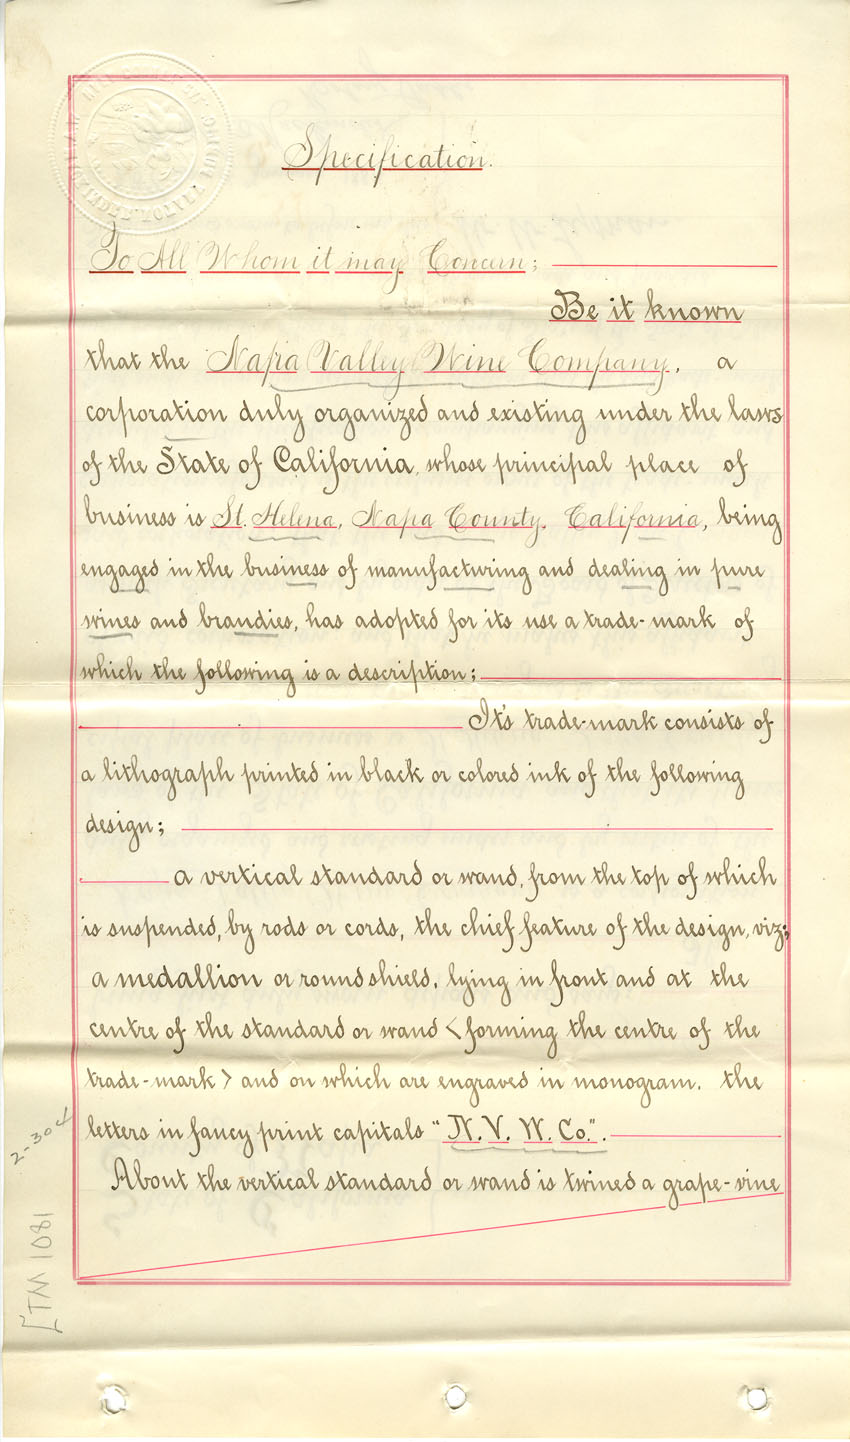 Specification.
To All Whom it may Concern;
Be it known
that the Napa Valley Wine Company, a
corporation duly organized and existing under the laws
of the State of California, whose principal place of
business is St. Helena, Napa County, California, being
engaged in the business of manufacturing and dealing in pure
wines and brandies, has adopted for its use a trade-mark of
which the following is a description;
It's trade-mark consists of
a lithograph printed in black or colored ink of the following
design;
a vertical standard or wand, from the top of which
is suspended, by rods or cords, the chief feature of the design, viz;
a medallion or round shield, lying in front and at the
centre of the standard or wand < forming the centre of the
trade-mark > and on which are engraved in monogram. the
letters in fancy print capitals "N. V. W. Co.".
About the vertical standard or wand is twined a grape-vine
2-304
[TM 1081